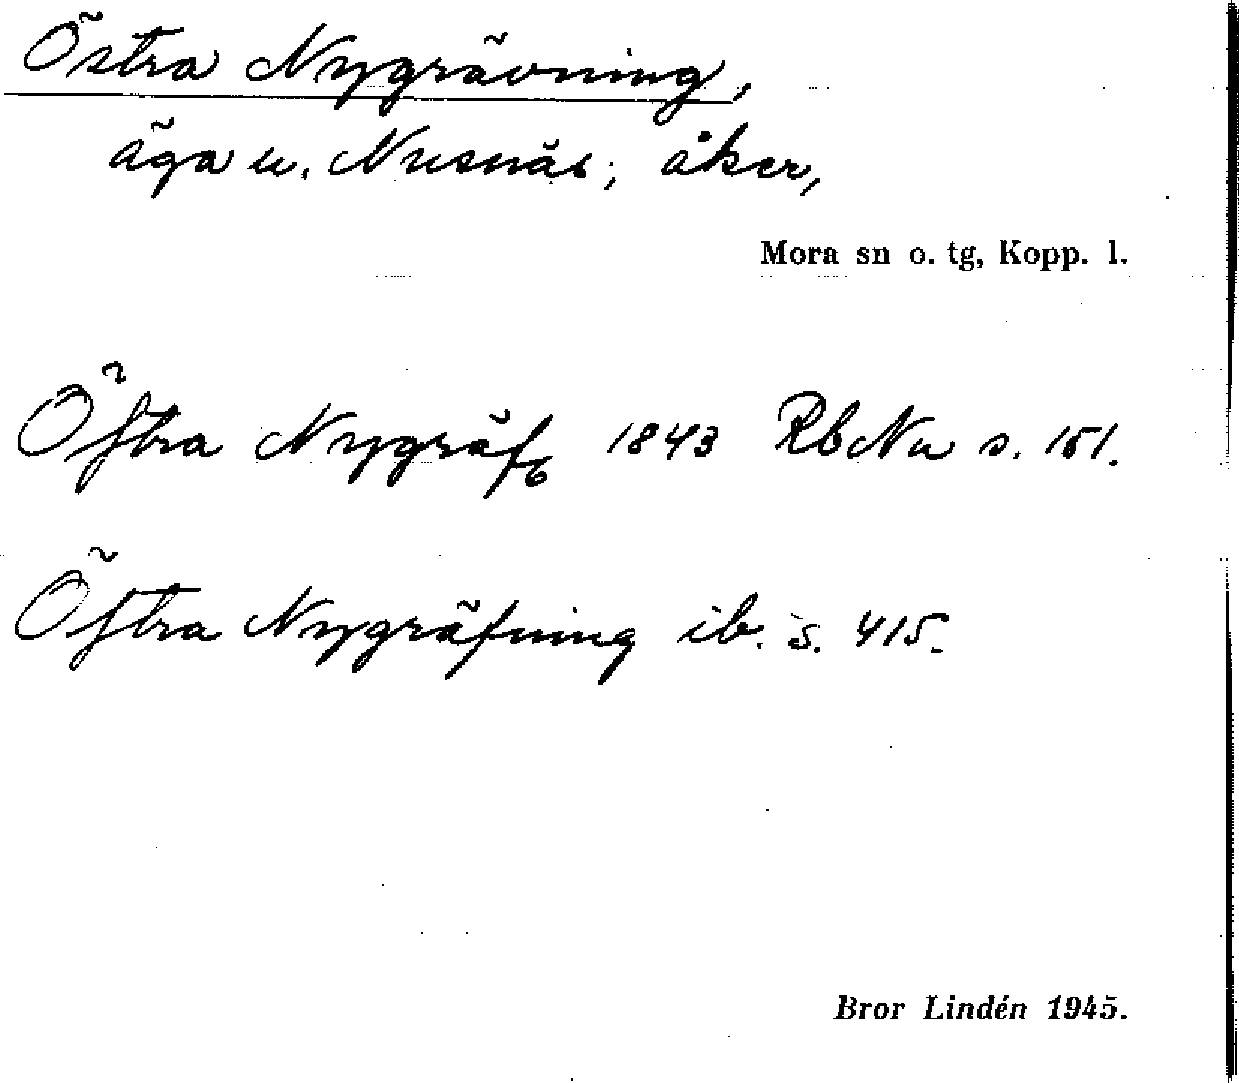 Östra Nygrävning,
äga u. Nusnäs; åker,
Mora sn o. tg, Kopp. l.
Öſtra Nygräfg 1843 RbNu s. 151.
Öſtra Nygräfning ib. s. 415.
Bror Lindén 1945.